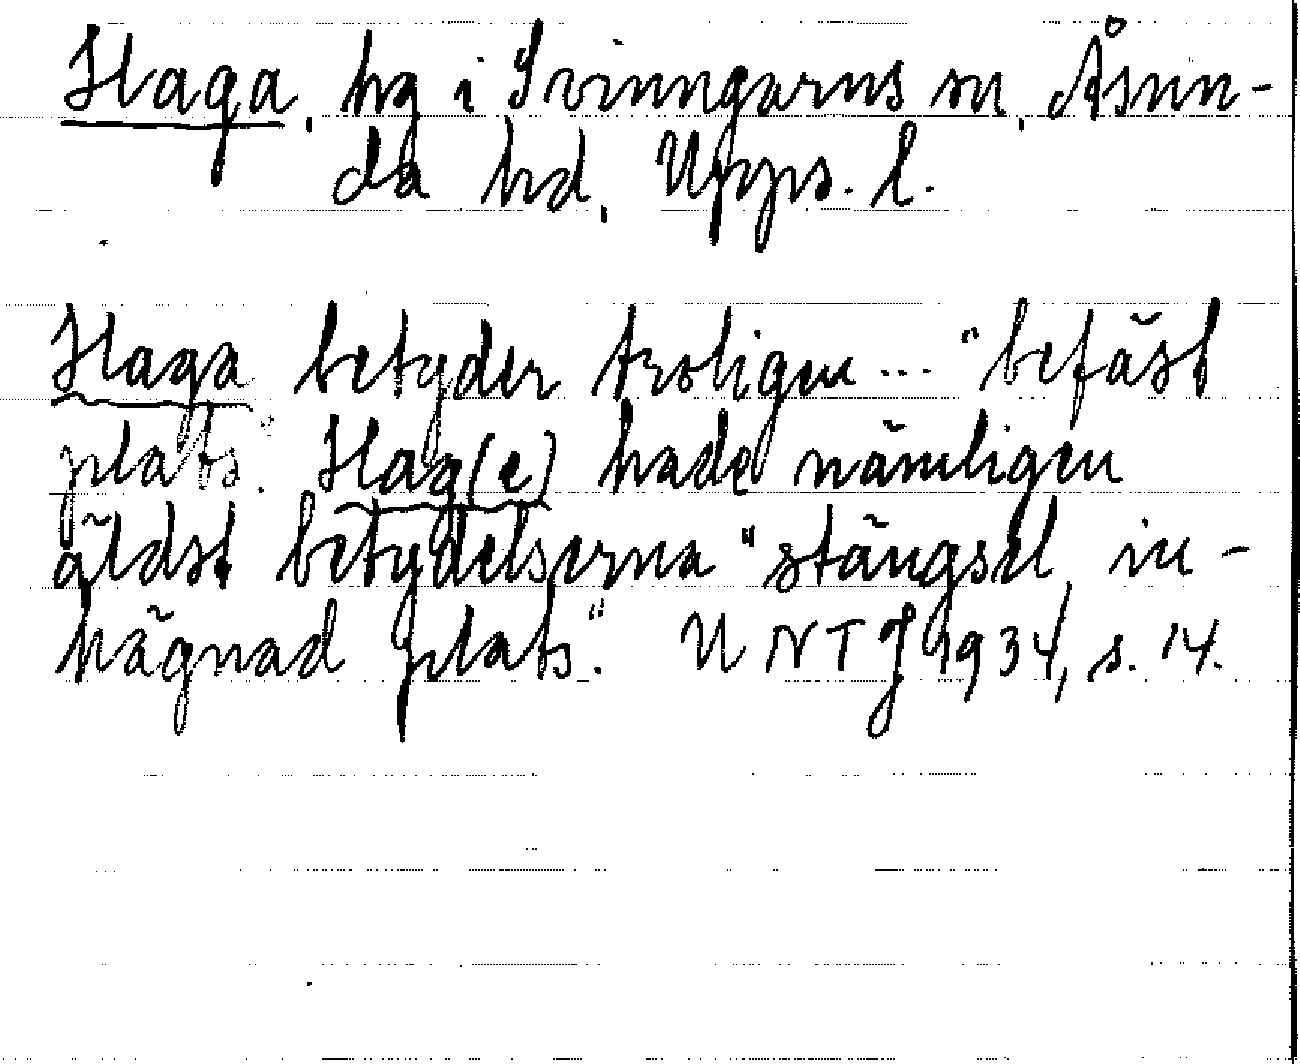 Haga, hg i Svinngarns sn, Åsun-
da hd, Upps. l.
Haga betyder troligen ... "befäst
plats". Hag(e) hade nämligen
äldst betydelserna "stängsel, in-
hägnad plats." UNTJ 1934, s. 14.